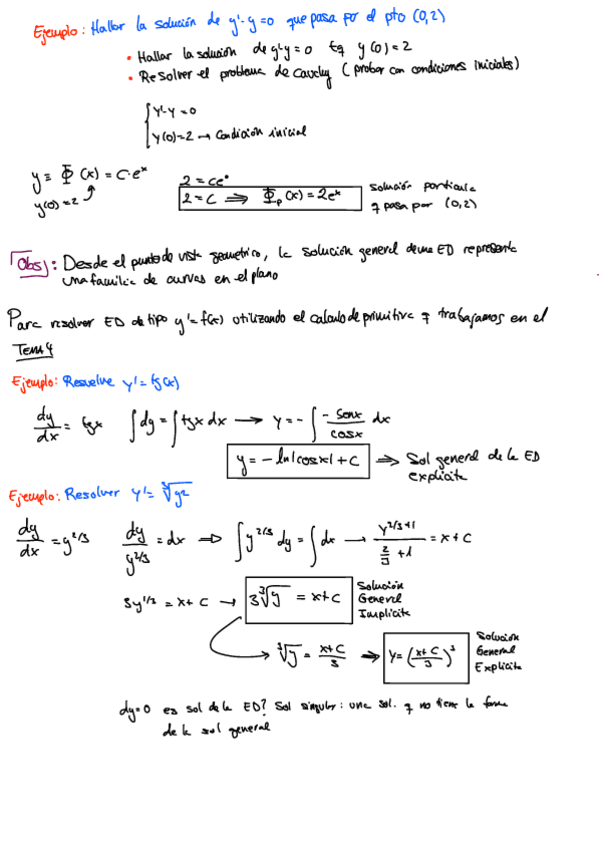 Ejemplo: Hallar la solución de y'-y=0 que pasa por el pto (0,2)
• Hallar la solución de y'-y=0 tq y(0)=2
• Resolver el problema de Cauchy (probar con condiciones iniciales)
y'-y=0
y(0)=2 → Condición inicial
y ≡ Φ(x) = C·e^x
y(0)=2
2 = ce^0
2 = C ⟹ Φp(x) = 2e^x
solución particular
q pasa por (0,2)
Obs: Desde el punto de vista geometrico, la solución general de una ED representa
una familia de curvas en el plano
Para resolver ED de tipo y'=f(x) utilizando el calculo de primitiva q trabajamos en el
Tema 4
Ejemplo: Resuelve y'=tg(x)
dy/dx = tgx ∫dy = ∫tgx dx → y = -∫ -senx/cosx dx
y = -ln|cosx| + C ⟹ Sol general de la ED
explicita
Ejemplo: Resolver y' = ∛y²
dy/dx = y^2/3 dy/y^2/3 = dx ⟹ ∫y^2/3 dy = ∫dx → y^2/3+1 / 2/3+1 = x+C
3y^1/3 = x+C → 3∛y = x+C
Solución
General
Implicita
∛y = x+C/3 ⟹ y = (x+C/3)³
Solución
General
Explicita
dy=0 es sol de la ED? Sol singular: una sol. q no tiene la forma
de la sol general